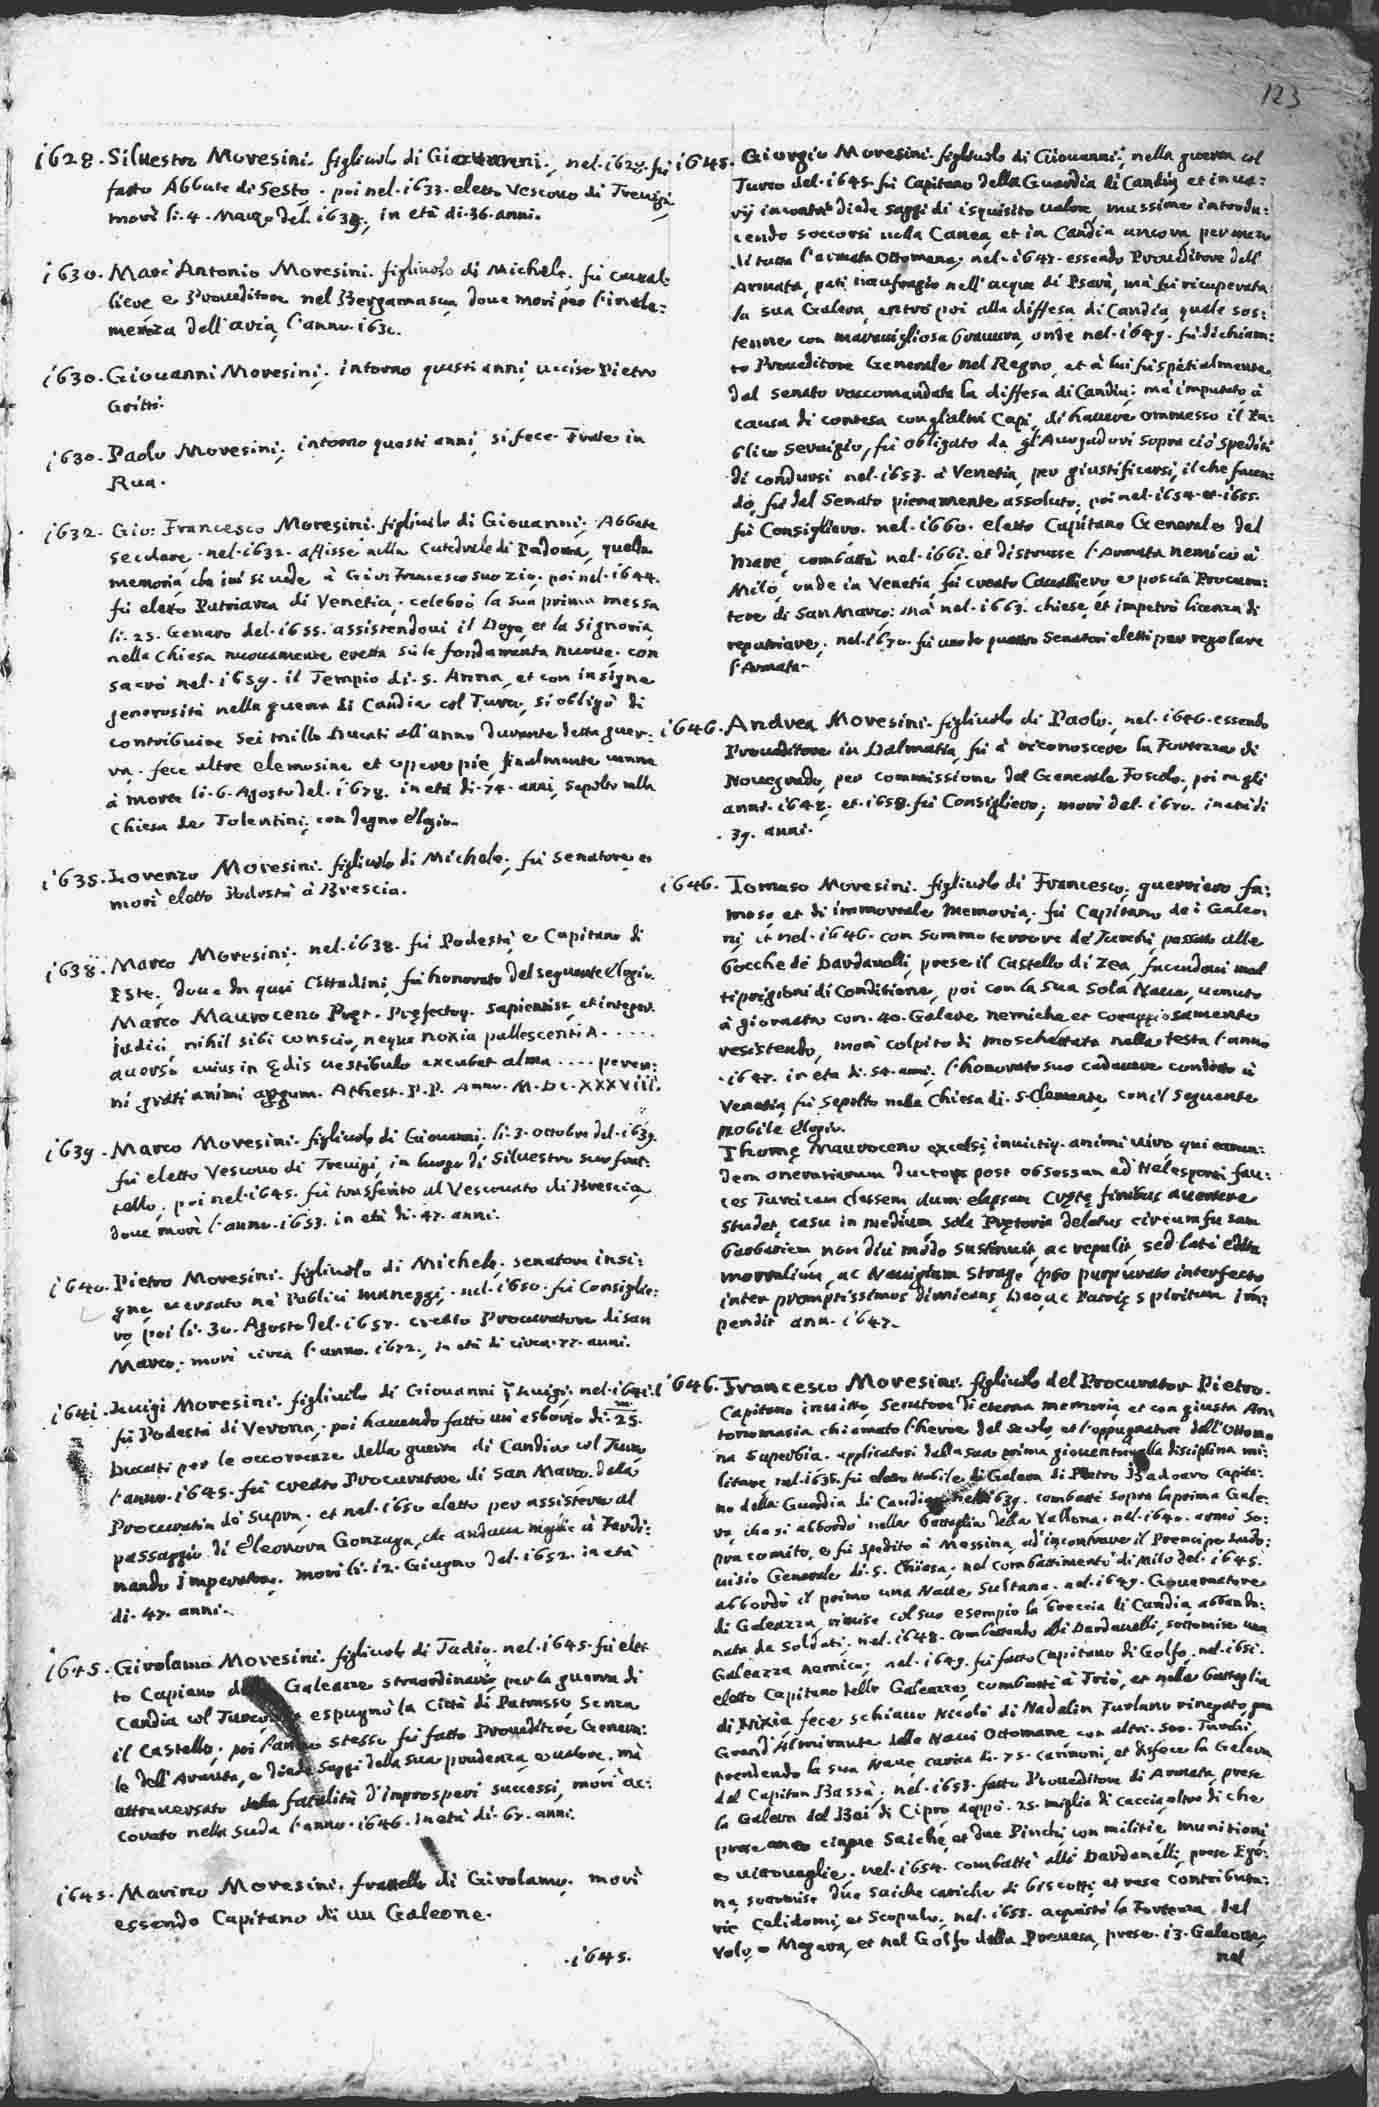 123
1628. Siluestro Moresini. figliuolo di Giouanni., nel. 1628. fu
fatto Abbate di Sesto. poi nel. 1633. eletto Vescouo di Treuigi,
morì li. 4. Marzo del. 1639, in età di. 36. anni.
1630. Marc'Antonio Moresini. figliuolo di Michele, fù Caual:
liere e Proueditore nel Bergamasco, doue morì per l'incle:
menza dell'aria, l'anno. 1630.
1630. Giouanni Moresini, intorno questi anni, uccise Pietro
Gritti.
1630. Paolo Moresini, intorno questi anni, si fece Frate in
Rua.
1632. Gio: Francesco Moresini. figliuolo di Giouanni, Abbate
secolare. nel. 1632. affisse nella Catedrale di Padoua, quella
memoria, che iui si uede à Gio: Francesco suo zio, poi nel. 1644.
fu eletto Patriarca di Venetia. celebrò la sua prima messa
li. 25. Genaro del. 1655. assistendoui il Doge, et la Signoria,
nella Chiesa nuouamente eretta sù le fondamenta nuoue. con
sacrò nel. 1659. il Tempio di. S. Anna, et con insigne
generosità nella guerra di Candia col Turco, si obligò di
contribuire sei mille Ducati all'anno durante detta guer:
ra. fece altre elemosine et opere pie, finalmente uenne
à morte li. 6. Agosto del. 1678. in età di. 74. anni, sepolto nella
Chiesa de Tolentini, con degno elogio.
1635. Lorenzo Moresini. figliuolo di Michele, fù Senatore, e
morì eletto Podestà à Brescia.
1638. Marco Moresini. nel. 1638. fù Podestà, e Capitano di
Este, doue da quei Cittadini, fù honorato del seguente elogio.
Marco Mauroceno Pręt. Pręfectoq. sapientiss. et integerr.
iudici, nihil sibi conscio, neque noxia pallescenti A. . . . . .
auorsa cuius in ędis uestibulo excubet alma . . . . peren:
ni grati animi argum. Athest. P.P. Anno. M. DC. XXXVIII.
1639. Marco Moresini. figliuolo di Giouanni, li. 3. ottobre del. 1639.
fu eletto Vescouo di Treuigi, in luogo di Siluestro suo frat:
tello, poi nel. 1645. fù trasferito al Vescouato di Brescia,
doue morì l'anno. 1653. in età di. 47. anni.
1640. Pietro Moresini. figliuolo di Michele, senatore insi:
gne, uersato ne' Publici maneggi. nel. 1650. fù Consiglie:
ro, poi li. 30. Agosto del. 1657. creato Procuratore di San
Marco, morì circa l'anno. 1672., in età di circa. 77. anni.
1641. Luigi Moresini. figliuolo di Giouanni q. Luigi, nel. 1641.
fù Podestà di Verona, poi hauendo fatto un'esborso di. 25.
Ducati per le occorrenze della guerra di Candia col Turco
l'anno. 1645. fù creato Procuratore di San Marco della
Procuratia de supra, et nel. 1650 eletto per assistere al
passaggio di Eleonora Gonzaga, che andaua moglie à Ferdi:
nando Imperatore. morì li. 12. Giugno del. 1652. in età
di. 47. anni.
1645. Girolamo Moresini. figliuolo di Tadio. nel. 1645. fù elet:
to Capiano Galeazze straordinarie, per la guerra di
Candia col Turco espugnò la Città di Patrasso, senza
il Castello, poi l'anno stesso fù fatto Proueditore Genera:
le dell'Armata, e diede saggi della sua prudenza, e ualore. mà
attrauersato dalla fatalità d'improsperi successi, morì ac:
corato nella Suda l'anno. 1646. in età di. 67. anni.
1645. Marino Moresini. frattello di Girolamo, morì
essendo Capitano di un Galeone.
.1645.
1645. Giorgio Moresini. figliuolo di Giouanni, nella guerra col
Turco del. 1645. fù Capitano della Guardia di Candia, et in ua:
rij incontri diede saggi di isquisito ualore, massime introdu:
cendo soccorsi nella Canea, et in Candia ancora per mezo
di tutta l'armata Ottomana. nel. 1647. essendo Proueditore dell'
Armata, patì naufragio nell'acque di Psarà, mà fù ricuperata
la sua Galera, entrò poi alla diffesa di Candia, quale sos:
tenne con marauigliosa brauura, onde nel. 1649. fù dichiara:
to Proueditore Generale nel Regno, et à lui fù spetialmente
dal Senato raccomandata la diffesa di Candia, mà imputato, à
causa di contesa con gl'altri Capi, di hauere ommesso il Pu:
blico seruigio, fù obligato da gl'Auogadori sopra ciò spediti
di condursi nel. 1653. à Venetia, per giustificarsi, il che facen:
do, fù dal Senato pienamente assoluto, poi nel. 1654. et. 1655.
fù Consigliero. nel. 1660. eletto Capitano Generale del
Mare, combattè nel. 1661. et distrusse l'Armata nemica à
Milo, onde in Venetia fù creato Caualliero, e poscia Procura:
tore di San Marco: mà nel. 1663. chiese, et impetrò licenza di
repatriare. nel. 1670. fù uno de quattro Senatori eletti per regolare
l'Armata.
1646. Andrea Moresini. figliuolo di Paolo, nel. 1646. essendo
Proueditore in Dalmatia, fù à riconoscere la Fortezza di
Nouegrado, per commissione del Generale Foscolo, poi ne gli
anni. 1648. et. 1658. fù Consigliero, morì del. 1670. in età di
. 39. anni.
1646. Tomaso Moresini. figliuolo di Francesco, guerriero fa:
moso, et di immortale memoria, fù Capitano de i Galeo:
ni, et nel. 1646. con sommo terrore de Turchi, passato alle
bocche de Dardanelli, prese il Castello di Zea, facendoui mol
ti prigioni di conditione, poi con la sua sola Naue, uenuto
à giornata con. 40. Galere nemiche, et coraggiosamente
resistendo, morì colpito di moschettata nella testa l'anno
. 1647. in età di. 54. anni, l'honorato suo cadauere condotto à
Venetia, fù sepolto nella Chiesa di. S. Clemente, con il seguente
nobile elogio.
Thomę Mauroceno excelsi, inuictiq. animi uiro, qui eorum:
dem onerariarum ductor, post obsessan ad Helesponti fau:
ces Turcicam classem, dum elapsam Crętę finibus auertere
studet, casu in medium sola Prętoria delatus circumfusam
barbariem non diu modo sustinuit, ac repulit, sed late edita
mortalium, ac Nauigiam strage, ipso purpurato interfecto
inter promptissimos dimicans, Deo, ac Patrię spiritum im:
pendit ann. 1647.
1646. Francesco Moresini. figliuolo del Procurator Pietro.
Capitano inuitto, Senatore di eterna memoria, et con giusta An
tonomasia chiamato l'heroe del secolo, et l'oppugnatore dell'Ottoma
na superbia. applicatosi dalla sua prima giouentù alla disciplina mi:
litare, nel. 1638. fù eletto Nobile di Galera di Pietro Badoaro Capita:
no della Guardia di Candia. nel 1639. combattè sopra la prima Gale:
ra, che si abbordò nella battaglia della Vallona. nel. 1640. armò So:
pra comito, e fù spedito à Messina, ad incontrare il Prencipe Ludo:
uisio Generale di. S. Chiesa. nel combattimento di Milo del. 1645.
abbordò il primo una Naue Sultana. nel. 1647. Gouernatore
di Galeazza, rimise col suo esempio la breccia di Candia, abbando:
nata da soldati. nel. 1648. combattendo alli Dardanelli, sottomise una
Galeazza nemica, nel. 1649. fù fatto Capitano di Golfo. nel. 1651.
eletto Capitano delle Galeazze, combattè à Triò, et nella battaglia
di Nixia fece schiauo Nicolò di Nadalin Furlano rinegato, gia
Grand'Almirante delle Naui Ottomane con altri. 500. Turchi,
prendendo la sua Naue carica di. 75. cannoni, et disfece la Galera
del Capitan Bassà. nel. 1653. fatto Proueditore di Armata, prese
la Galera del Bei di Cipro doppò. 25. miglia di caccia, oltre di che
prese anco cinque Saiche, et due Pinchi, con militie, munitioni,
e uittouaglie. nel. 1654. combattè alli Dardanelli, prese Egi:
na, sottomise due Saiche cariche di biscotti, et rese contributa:
rie Calidomi, et Scopulo, nel. 1655. acquistò la Fortezza del
Volo, e Megara, et nel Golfo della Preuesa, prese. 13. Galeotte,
nel